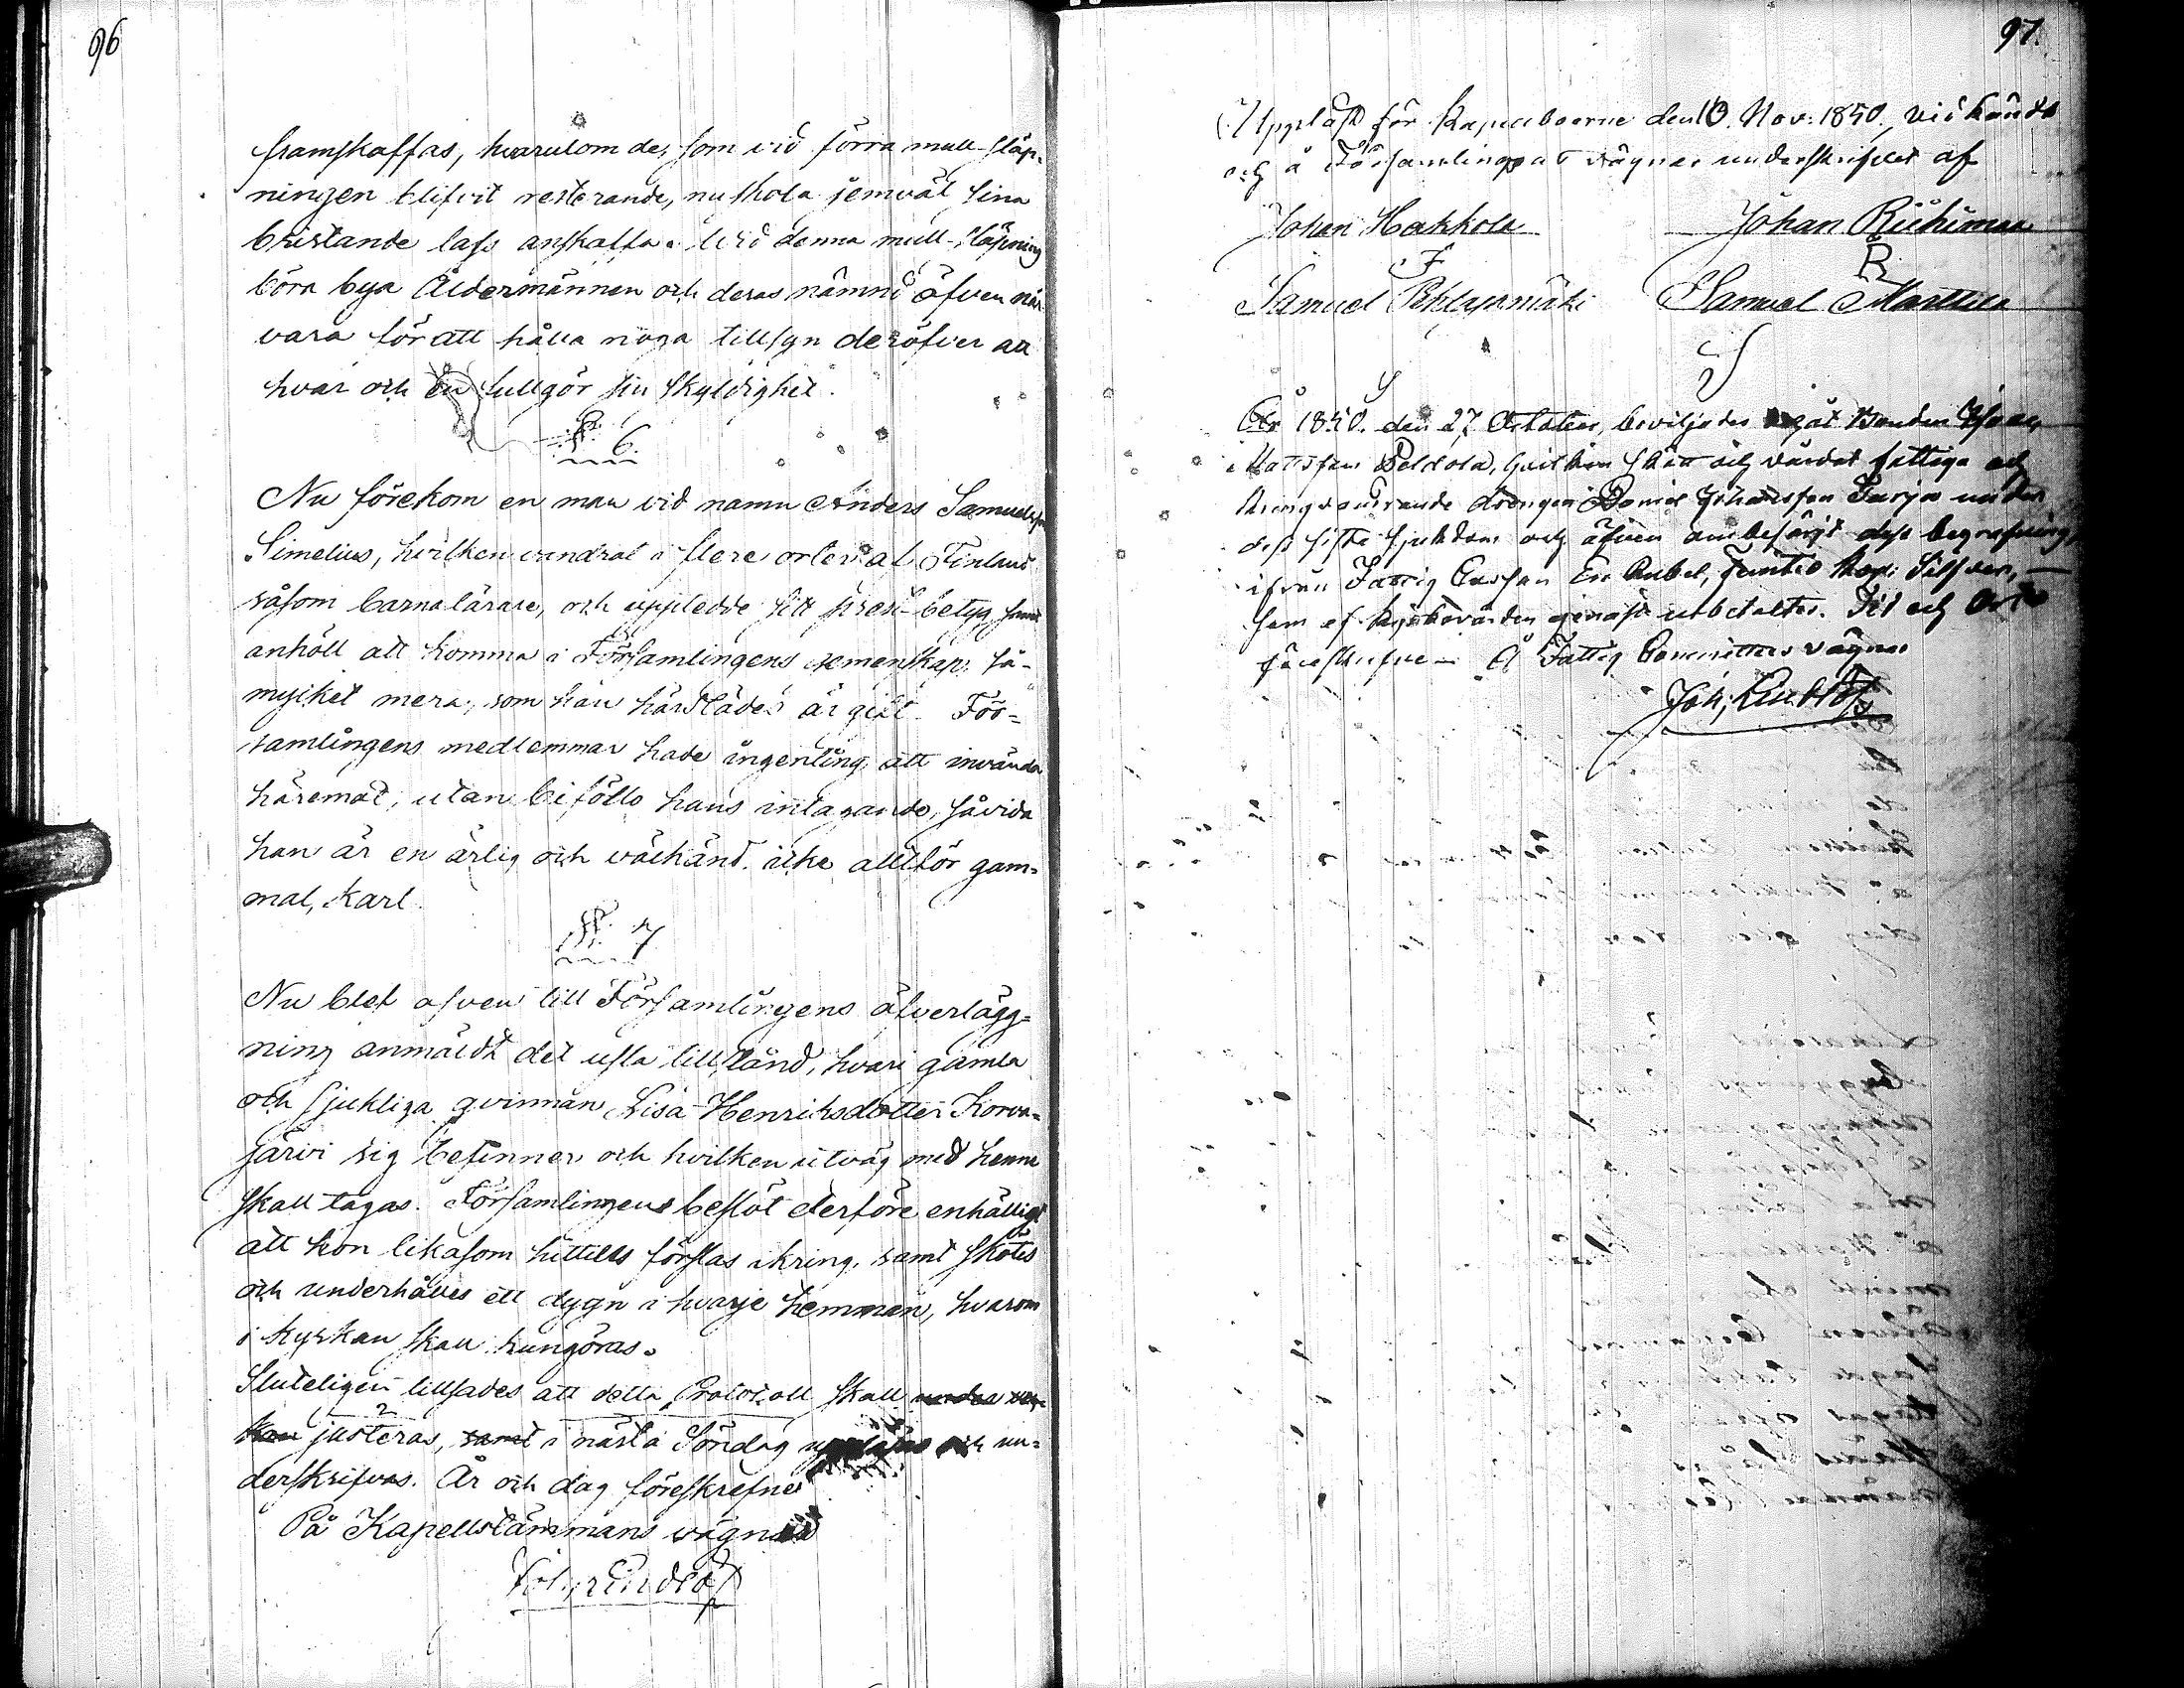 96
framskaffas, hvarutom de, som vid förra mull-släp-
ningen blifvit resterande, nu skola jemväl sina
bristande lass anskaffa. Wid denna mull-släpning
böra bya Åldermännen och deras nämnd äfven när-
vara för att hålla noga tillsyn deröfver att
hvar och en fullgör sin skyldighet.
§ 6.
Nu förekom en man vid namn Anders Samuelsson
Simelius, hvilken vandrat i flere orter af Finland
såsom barnalärare, och uppledde sitt prest-betyg samt
anhöll att komma i Församlingens gemenskap, så-
mycket mera, som han härstädes är gift. För-
samlingens medlemmar hade ingenting att invända
häremot, utan biföllo hans intagande, såvida
han är en ärlig och välkänd, icke alltför gam-
mal, Karl.
§ 7
Nu blef äfven till Församlingens öfverlägg-
ning anmäldt det usla tillstånd, hvari gamla
och sjukliga qvinnan Lisa Henriksdotter Korva-
järvi sig befinner och hvilken utväg med henne
skall tagas. Församlingens beslöt derföre enhälligt
att hon likasom hittills förslas ikring, samt skötes
och underhålles ett dygn i hvarje hemman, hvarom
i kyrkan skall kungöras.
Sluteligen tillsades att detta Protocoll skall
justeras, samt i nästa Söndag uppläsas och un-
derskrifvas. År och dag föreskrefne
På Kapellstämmans vägnar
Joh. Lindlöf
97.
Uppläst för Kapellboerne den 10. Nov. 1850, vidkändt
och å Församlingens vägnar underskrifvet af
Johan Hakkola Johan Riihimaa
R
Samuel Pehlajamäki Samuel Marttila
År 1850. den 27 October, beviljades åt Bonden
Matsson Peldola, hvilken skött och vårdat fattiga och
kringvandrande drengen Daniel Johansson under
dess sista sjukdom och äfven ombesörjt dess begrafning,
ifrån Fattig Cassan En Rubel, femtio Kop: Silfver,
som af kyrkovärden genast utbetaltes. Tid och Ort
föreskrifne. Å Fattig Committens vägnar
Joh. Lindlöf